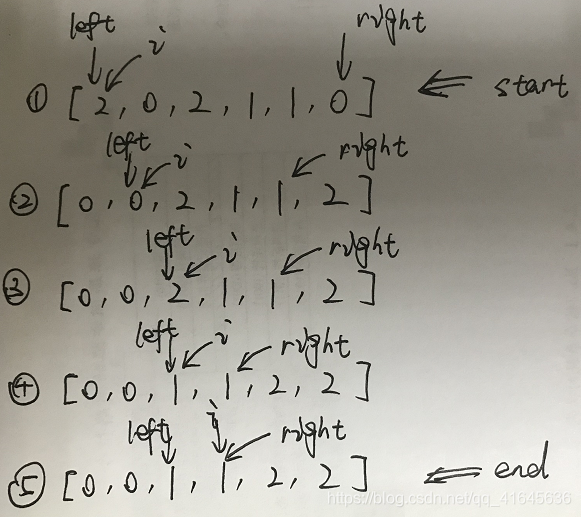 left i right
① [2, 0, 2, 1, 1, 0] start
left i right
② [0, 0, 2, 1, 1, 2]
left i right
③ [0, 0, 2, 1, 1, 2]
left i right
④ [0, 0, 1, 1, 2, 2]
left i right
⑤ [0, 0, 1, 1, 2, 2] end
https://blog.csdn.net/qq_41645636